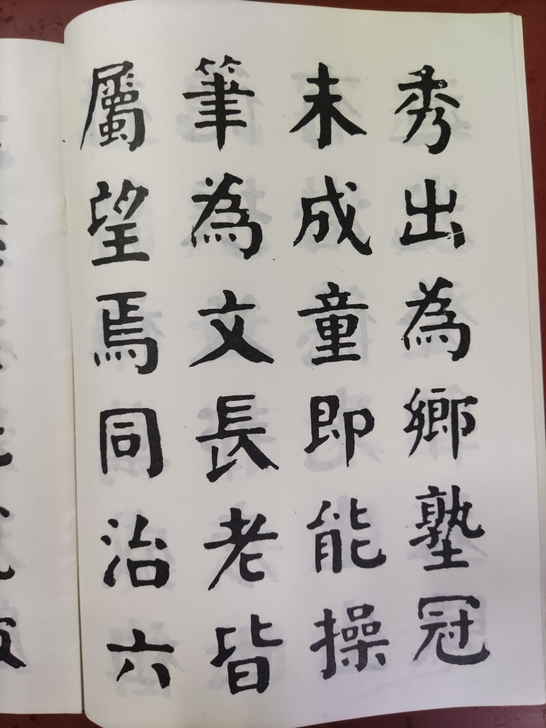 秀出為鄉塾冠
未成童即能操
筆為文長老皆
屬望焉同治六